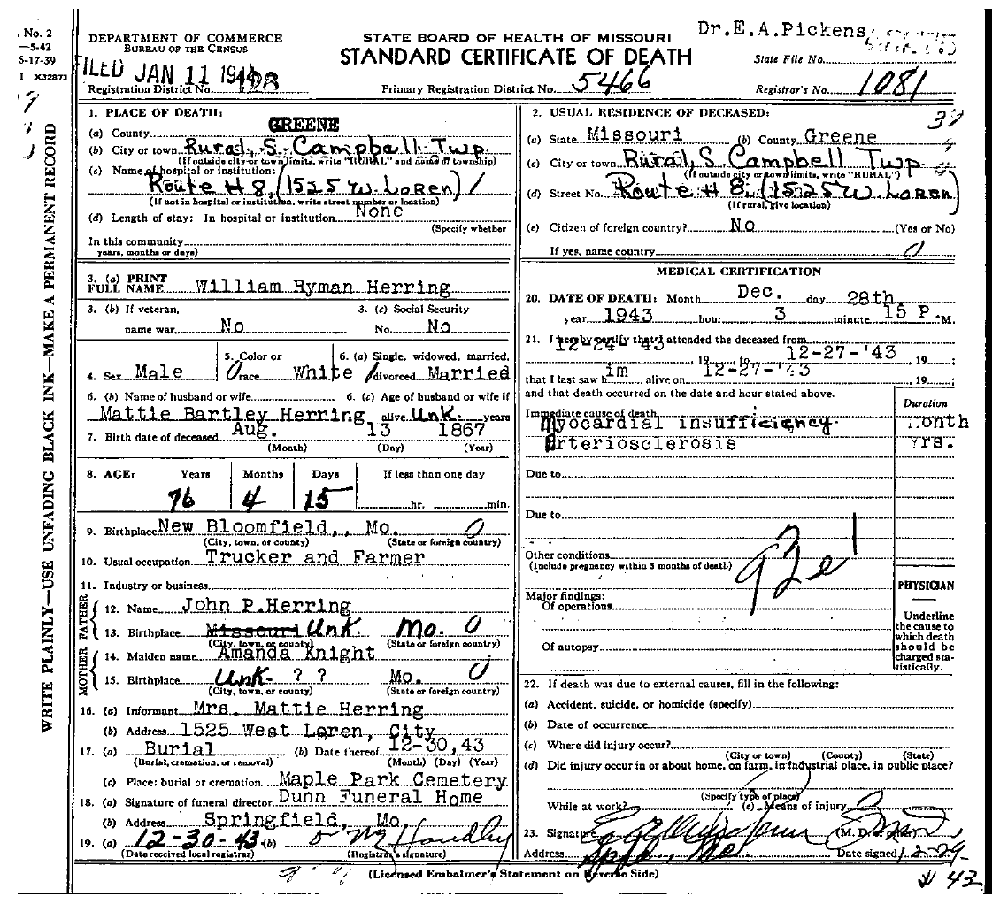 No. 2
—5-42
5-17-39
I X32873
WRITE PLAINLY—USE UNFADING BLACK INK—MAKE A PERMANENT RECORD
DEPARTMENT OF COMMERCE
BUREAU OF THE CENSUS
FILED JAN 11
Registration District No.
STATE BOARD OF HEALTH OF MISSOURI
STANDARD CERTIFICATE OF DEATH
Primary Registration District No. 5466
Dr. E. A. Pickens
State File No.
Registrar's No. 1081
1. PLACE OF DEATH:
(a) County GREENE
(b) City or town Rural, S. Campbell Twp
(If outside city or town limits, write "RURAL" and name of township)
(c) Name of hospital or institution:
Route # 8, (1525 W. Loren)
(If not in hospital or institution, write street number or location)
(d) Length of stay: In hospital or institution None
(Specify whether
In this community
years, months or days)
3. (a) PRINT
FULL NAME William Hyman Herring
3. (b) If veteran,
name war No
3. (c) Social Security
No. No
4. Sex Male
5. Color or
race White
6. (a) Single, widowed, married,
divorced Married
6. (b) Name of husband or wife
Mattie Bartley Herring
6. (c) Age of husband or wife if
alive Unk. years
7. Birth date of deceased Aug. 13 1867
(Month) (Day) (Year)
8. AGE: Years Months Days If less than one day
76 4 15 hr. min.
9. Birthplace New Bloomfield, , Mo. 0
(City, town, or county) (State or foreign country)
10. Usual occupation Trucker and Farmer
11. Industry or business
FATHER
12. Name John P. Herring
13. Birthplace Missouri Unk. Mo. 0
(City, town, or county) (State or foreign country)
MOTHER
14. Maiden name Amanda Knight
15. Birthplace Unk- ? ? Mo. 0
(City, town, or county) (State or foreign country)
16. (a) Informant Mrs. Mattie Herring
(b) Address 1525 West Loren, City
17. (a) Burial (b) Date thereof 12-30,43
(Burial, cremation, or removal) (Month) (Day) (Year)
(c) Place: burial or cremation Maple Park Cemetery
18. (a) Signature of funeral director Dunn Funeral Home
(b) Address Springfield, Mo.
19. (a) 12-30-43 (b) Handley
(Date received local registrar) (Registrar's signature)
2. USUAL RESIDENCE OF DECEASED:
(a) State Missouri (b) County Greene
(c) City or town Rural, S Campbell Twp
(If outside city or town limits, write "RURAL")
(d) Street No. Route # 8. (1525 W. Loren)
(If rural, give location)
(e) Citizen of foreign country? No (Yes or No)
If yes, name country 0
MEDICAL CERTIFICATION
20. DATE OF DEATH: Month Dec. day 28th
year 1943 hour 3 minute 15 P. M.
21. I hereby certify that I attended the deceased from
12-24-'43 19 to 12-27-'43 19
that I last saw him alive on 12-27-'43 19
and that death occurred on the date and hour stated above.
Duration
Immediate cause of death
Myocardial insufficiency. Month
Arteriosclerosis Yrs.
Due to
Due to
Other conditions
(Include pregnancy within 3 months of death)
Major findings:
Of operations
Of autopsy
PHYSICIAN
Underline
the cause to
which death
should be
charged sta-
tistically.
22. If death was due to external causes, fill in the following:
(a) Accident, suicide, or homicide (specify)
(b) Date of occurrence
(c) Where did injury occur?
(City or town) (County) (State)
(d) Did injury occur in or about home, on farm, in industrial place, in public place?
(Specify type of place)
While at work? (e) Means of injury
23. Signature (M. D.
Address Spfd., Mo. Date signed 12-29-
43
(Licensed Embalmer's Statement on Reverse Side)